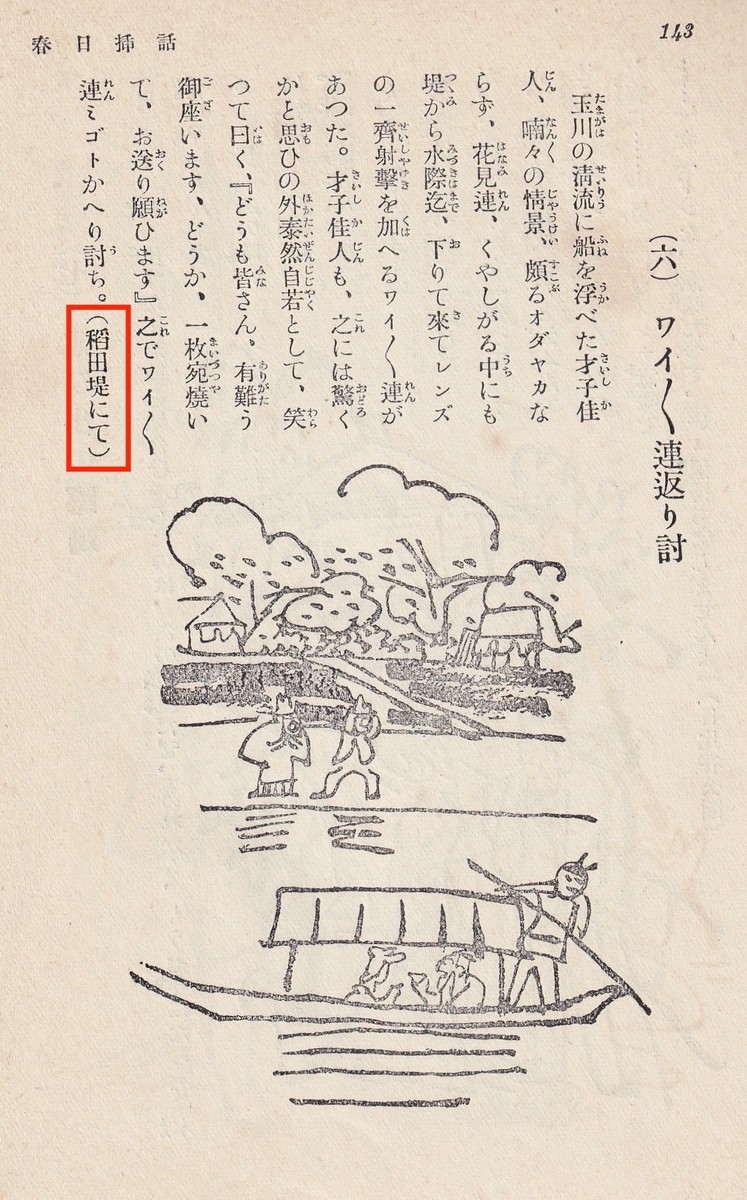 143
春日揷話
(六) ワイ〳〵連返り討
玉川の淸流に船を浮べた才子佳
人、喃々の情景、頗るオダヤカな
らず、花見連、くやしがる中にも
堤から水際迄、下りて來てレンズ
の一齊射擊を加へるワイ〳〵連が
あつた。才子佳人も、之には驚く
かと思ひの外泰然自若として、笑
つて曰く、『どうも皆さん。有難う
御座います、どうか、一枚宛燒い
て、お送り願ひます』之でワイ〳〵
連ミゴトかへり討ち。(稻田堤にて)